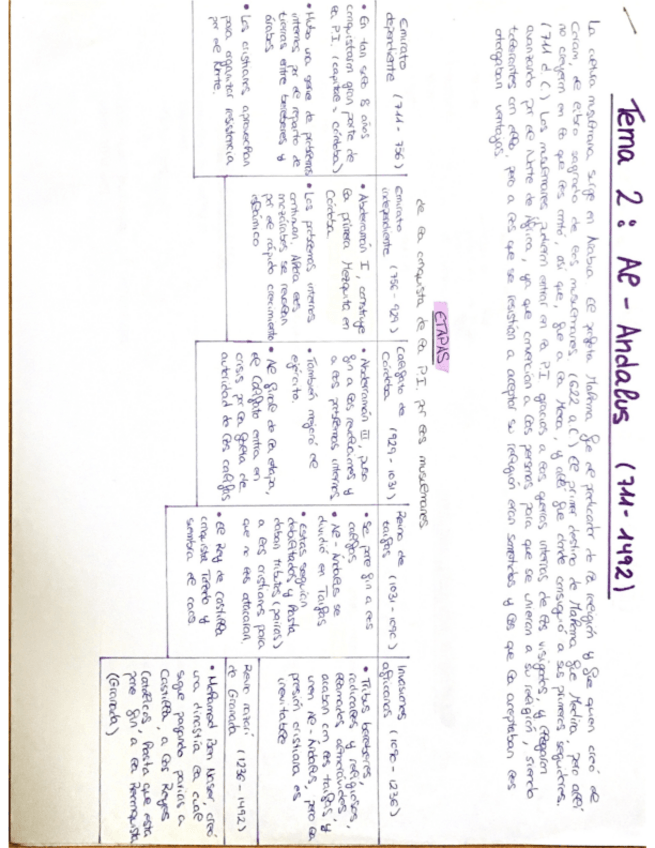 Tema 2: Al-Andalus (711-1492)
La cultura musulmana surge en Arabia. El profeta Mahoma fue el predicador de la religión y fue quien creó el
Corán, el libro sagrado de los musulmanes. (622 a.C) El primer destino de Mahoma fue Medina pero allí
no creyeron en lo que les contó, así que, fue a La Meca, y allí fue donde consiguió a sus primeros seguidores.
(711 d.C.) Los musulmanes pudieron entrar en la P.I gracias a las guerras internas de los visigodos, y llegaron
avanzando por el Norte de África, ya que convencían a las personas para que se unieran a su religión, siendo
tolerantes con ellos, pero a los que se resistían a aceptar su religión eran sometidos y los que la aceptaban les
otorgaban ventajas.
ETAPAS
de la conquista de la P.I. por los musulmanes
Emirato
dependiente (711-756)
• En tan solo 8 años
conquistaron gran parte de
la P.I. (capital > Córdoba)
• Hubo una serie de problemas
internos por el reparto de
tierras entre bereberes y
árabes
• Los cristianos aprovechan
para organizar resistencia
por el Norte.
Emirato
independiente (756-929)
• Abderramán I, construye
la primera Mezquita en
Córdoba
• Los problemas internos
continúan. Ahora los
mozárabes se revelan
por el rápido crecimiento
islámico
Califato de
Córdoba (929-1031)
• Abderramán III, puso
fin a las revelaciones y
a los problemas internos
• También mejoró el
ejército.
• Al final de la etapa,
el Califato entra en
crisis por la falta de
autoridad de los califas
Reino de
taifas (1031-1090)
• Se pone fin a los
califas
• Al-Ándalus se
dividió en Taifas
• Estas seguían
debilitadas y hasta
daban tributos (parias)
a los cristianos para
que no les atacaran.
• El Rey de Castilla
conquista Toledo y
siembra el caos
Invasiones (1090-1236)
africanas
• Tribus bereberes,
radicales y religiosos,
llamados almorávides,
acaban con las taifas y
unen Al-Ándalus, pero la
presión cristiana es
inevitable
Reino nazarí (1236-1492)
de Granada
• Mohamed Ben Nasar, creó
una dinastía la cual
sigue pagando parias a
Castilla, a los Reyes
Católicos, hasta que esta
pone fin a la Reconquista
(Granada)